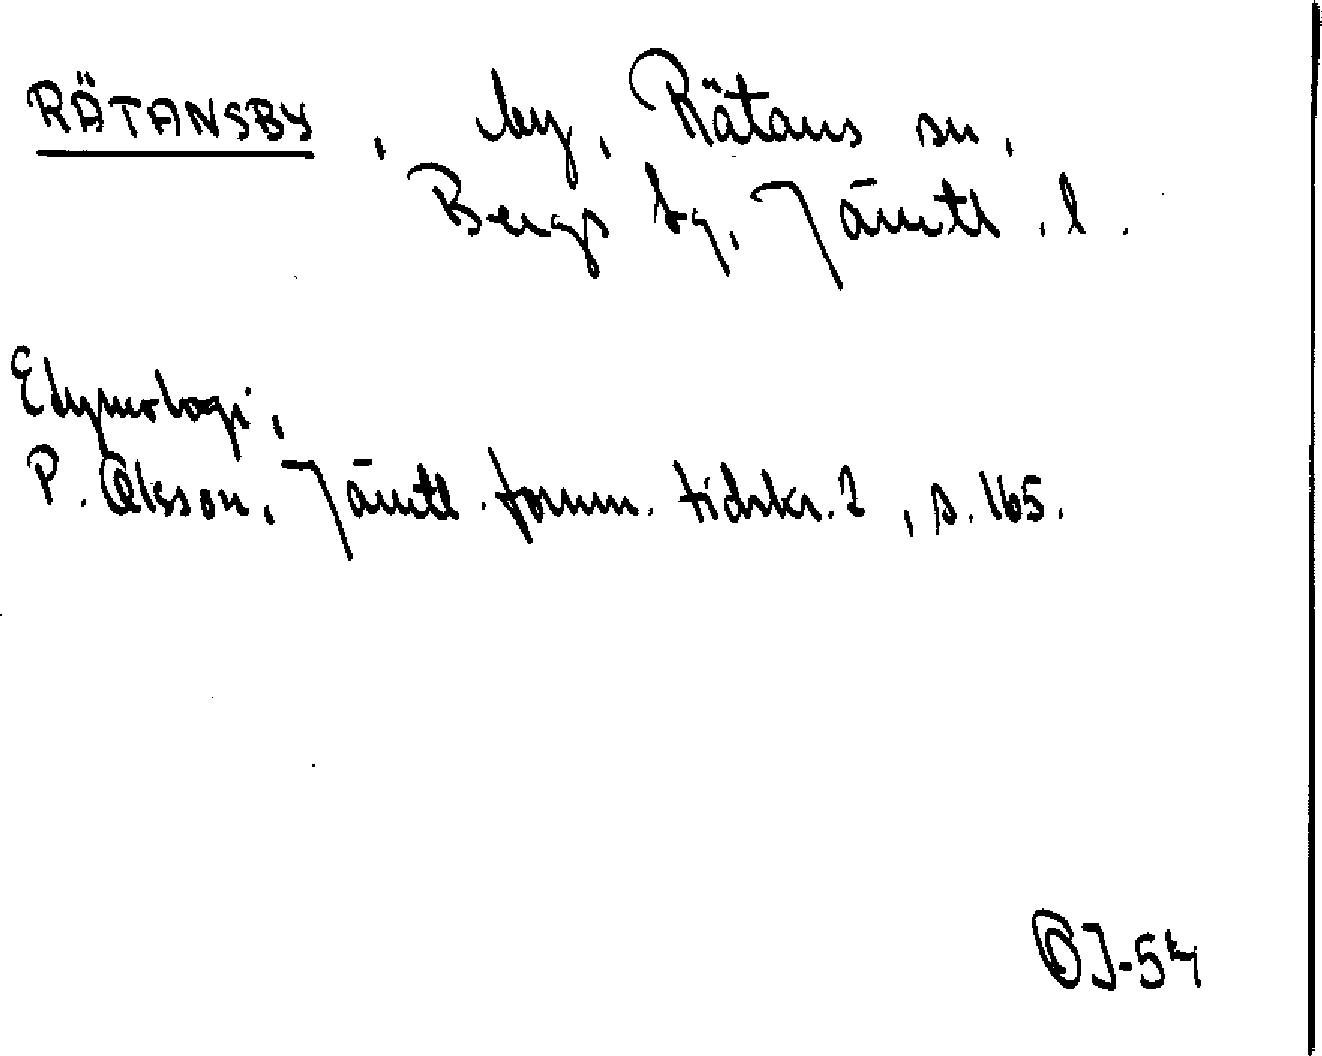 RÄTANSBY, by, Rätans sn,
Bergs tg, Jämtl. l.
Etymologi,
P. Olsson, Jämtl. fornm. tidskr. 2, s. 165.
OJ-54